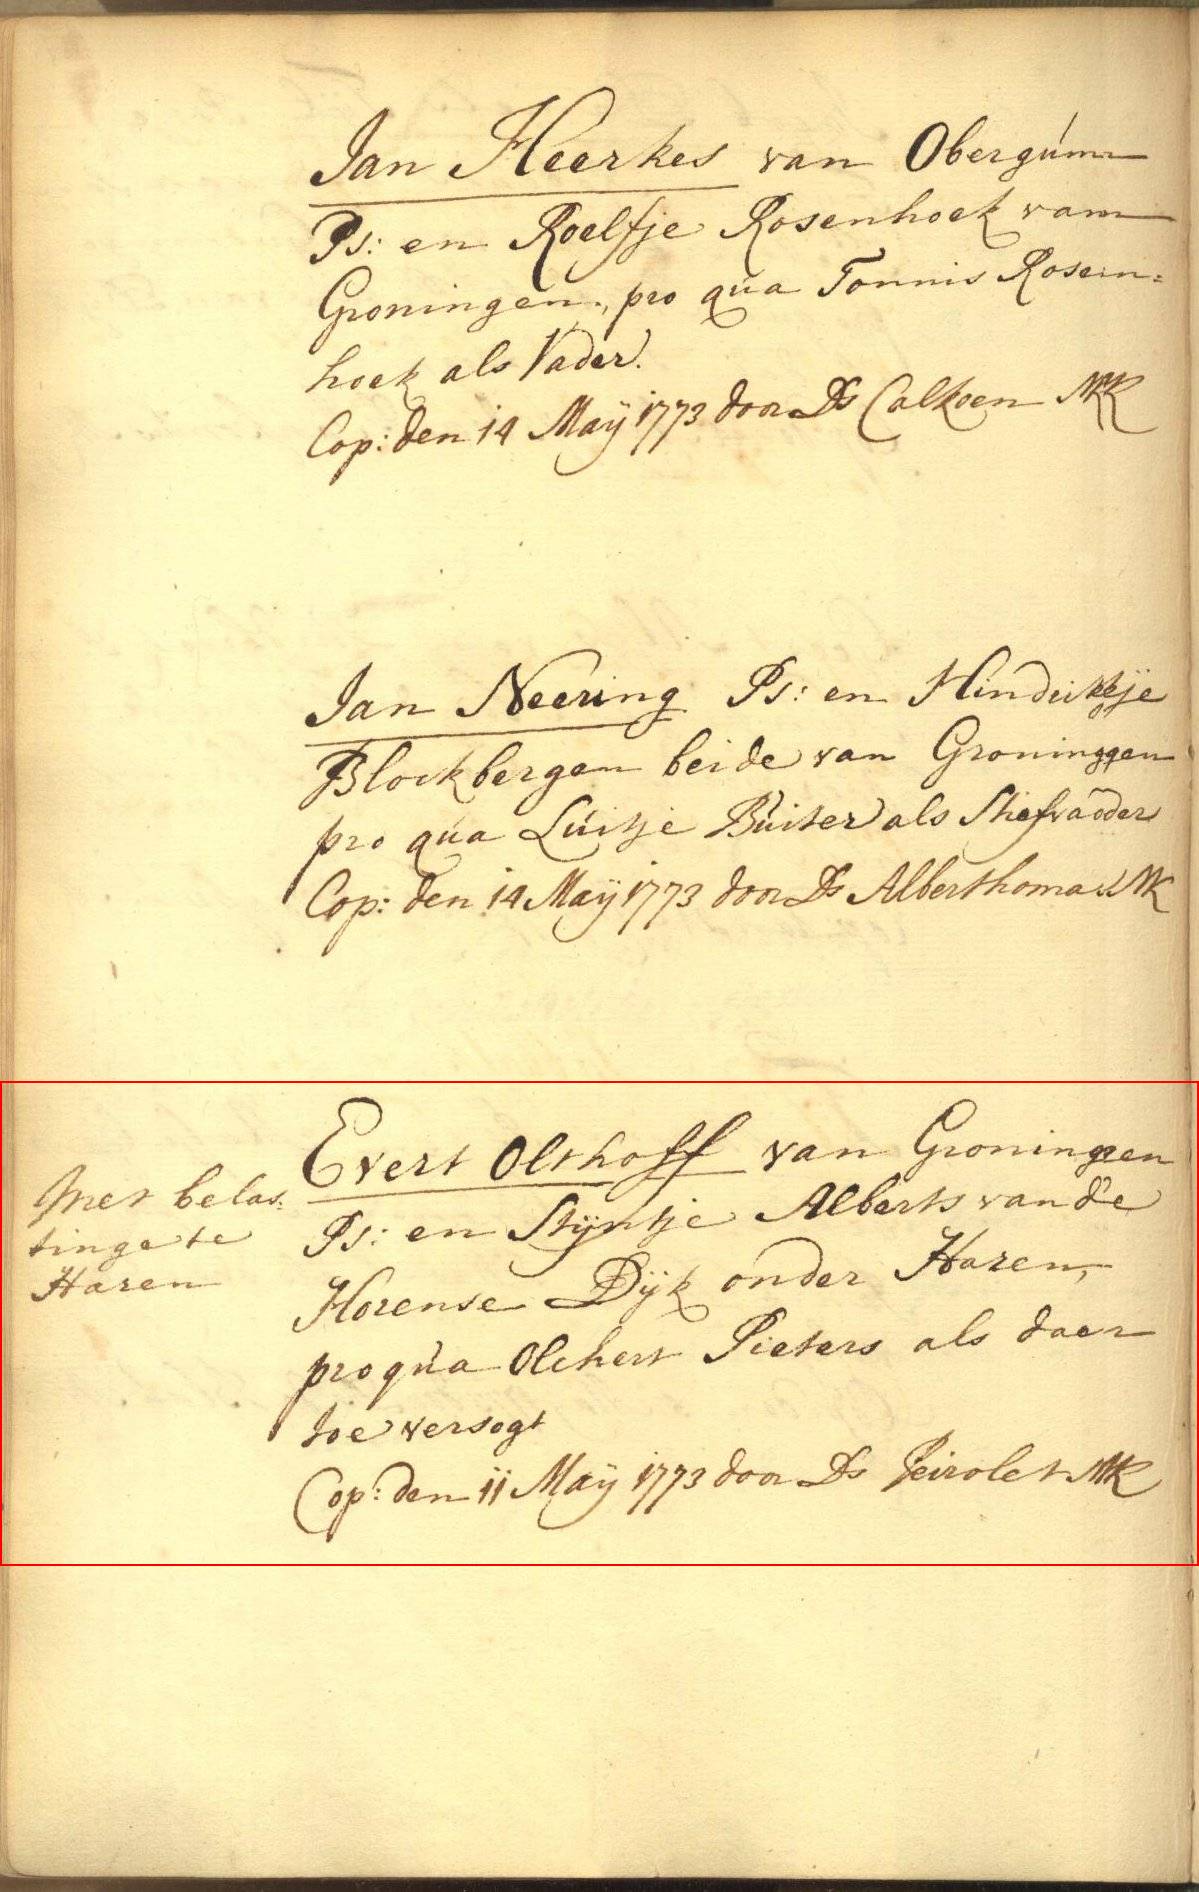 Jan Heerkes van Obergúm
Ps: en Roelfje Rosenhoek vam
Groningen, pro qúa Tonnis Rosen=
hoek als Vader.
Cop: den 14 Maÿ 1773 door Ds Calkoen MK
Jan Neering Ps: en Hindriktje
Blockbergen beide van Groninggen
pro qúa Lúitje Búiter als Stiefvader
Cop: den 14 Maÿ 1773 door Ds Alberthoma MK
Evert Olthoff van Groningen
Met belas:
tinge te
Haren
Ps: en Stÿntje Alberts van de
Horense Dÿk onder Haren,
pro qúa Olchert Pieters als daer
toe versogt
Cop: den 11 Maÿ 1773 door Ds Peirolet MK